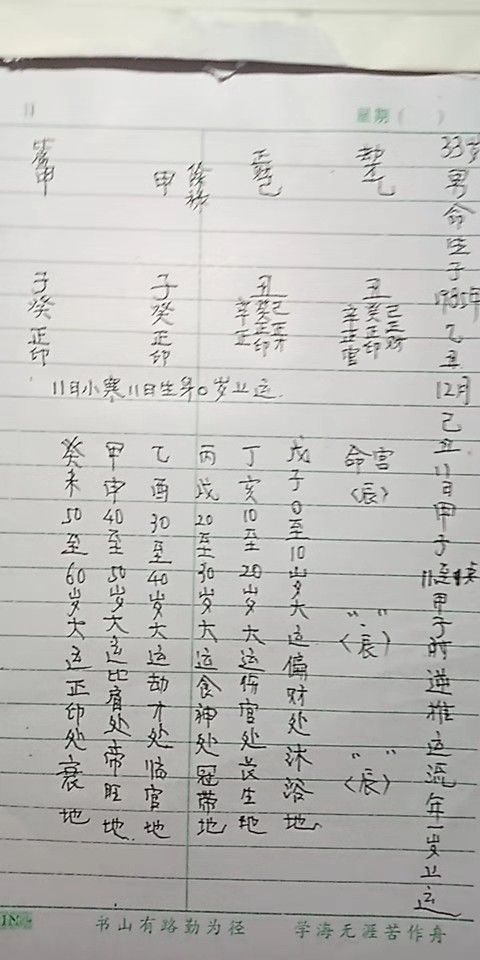 星期（　）
33岁男命生于1985年乙丑12月己丑11日甲子11至1点甲子时逆推运流年一岁上运
劫才乙
丑
己正财
癸正印
辛正官
正财己
丑
己正才
癸正印
辛正
甲
子癸正印
甲
子癸正印
11日小寒11日生年0岁上运.
命宫〈辰〉
" "〈辰〉
" "〈辰〉
戊子0至10岁大运偏财处沐浴地
丁亥10至20岁大运伤官处长生地
丙戌20至30岁大运食神处冠带地
乙酉30至40岁大运劫才处临官地
甲申40至50岁大运比肩处帝旺地
癸未50至60岁大运正印处衰地
书山有路勤为径
学海无涯苦作舟